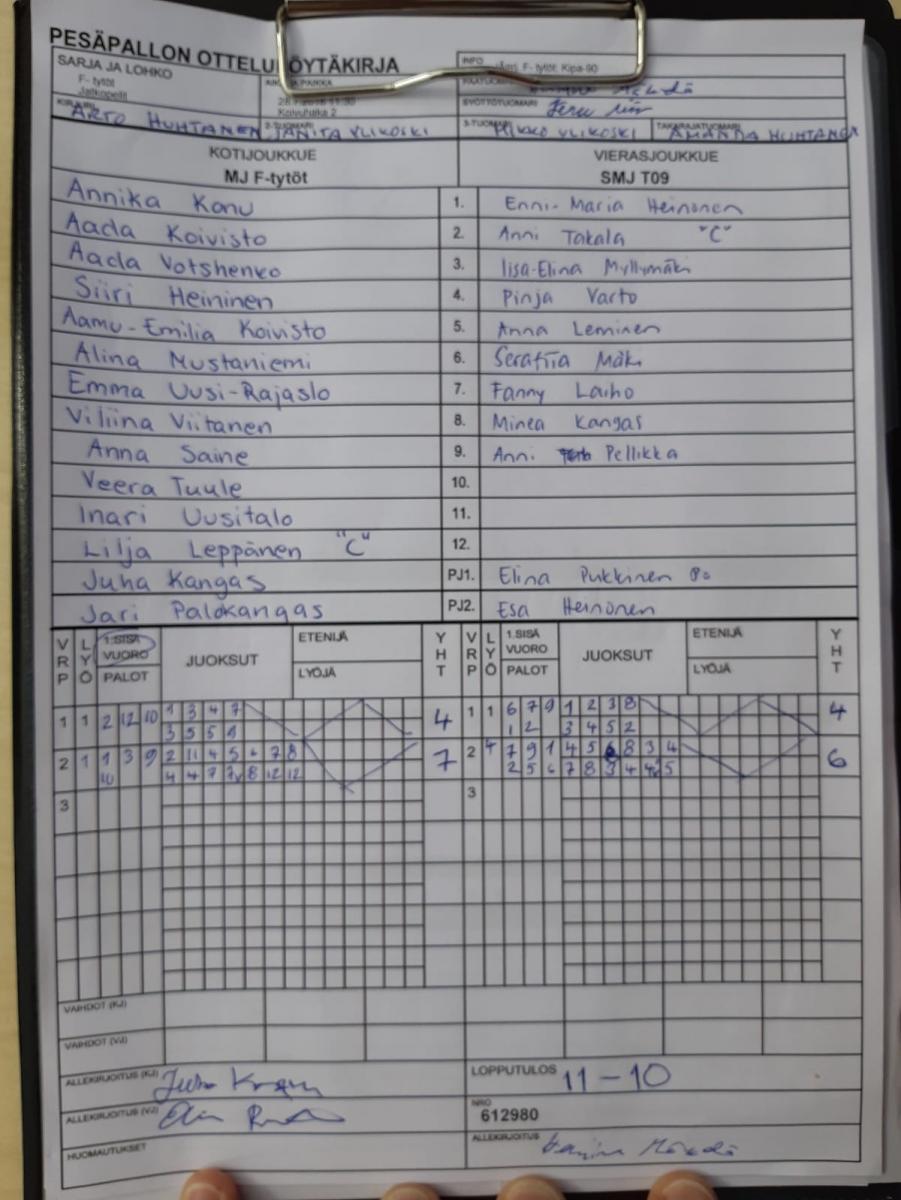 PESÄPALLON OTTELUPÖYTÄKIRJA
SARJA JA LOHKO
F- tytöt
Jatkopelit
AIKA JA PAIKKA
11:30
Koivuhaka 2
INFO
F- tytöt, Kipa-90
SYÖTTÖTUOMARI
KIRJURI ARTO HUHTANEN 2-TUOMARI JANITA YLIKOSKI 3-TUOMARI MIKKO YLIKOSKI TAKARAJATUOMARI AMANDA HUHTANEN
KOTIJOUKKUE VIERASJOUKKUE
MJ F-tytöt SMJ T09
Annika Konu 1. Enni-Maria Heinonen
Aada Koivisto 2. Anni Takala "C"
Aada Votshenko 3. Iisa-Elina Myllymäki
Siiri Heininen 4. Pinja Varto
Aamu-Emilia Koivisto 5. Anna Leminen
Alina Mustaniemi 6. Serafiia Mäki
Emma Uusi-Rajaslo 7. Fanny Laiho
Viliina Viitanen 8. Minea Kangas
Anna Saine 9. Anni Pellikka
Veera Tuule 10.
Inari Uusitalo 11.
Lilja Leppänen "C" 12.
Juha Kangas PJ1. Elina Pukkinen
Jari Palokangas PJ2. Esa Heinonen
VRP LYÖ 1.SISÄ VUORO PALOT JUOKSUT ETENIJÄ LYÖJÄ YHT VRP LYÖ 1.SISÄ VUORO PALOT JUOKSUT ETENIJÄ LYÖJÄ YHT
1 1 2 12 10 1 3 4 7 4 1 1 6 7 9 1 2 3 8 4
3 5 5 9 1 2 3 4 5 2
2 1 1 3 9 2 11 4 5 6 7 8 7 2 4 7 9 1 4 5 6 8 3 4 6
10 4 4 7 7 8 12 12 2 5 6 7 8 3 4 5
3 3
VAIHDOT (KJ)
VAIHDOT (VJ)
ALLEKIRJOITUS (KJ) LOPPUTULOS 11-10
ALLEKIRJOITUS (VJ) NRO
612980
HUOMAUTUKSET ALLEKIRJOITUS